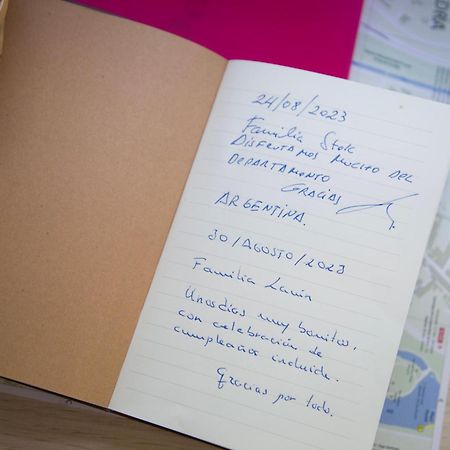 24/08/2023
Familia Stok
DISFRUTAMOS MUCHO DEL
DEPARTAMENTO
GRACIAS
ARGENTINA.
30/AGOSTO/2023
Familia Lanín
Unos dias muy bonitos,
con celebración de
cumpleaños incluida.
Gracias por todo.
DRA